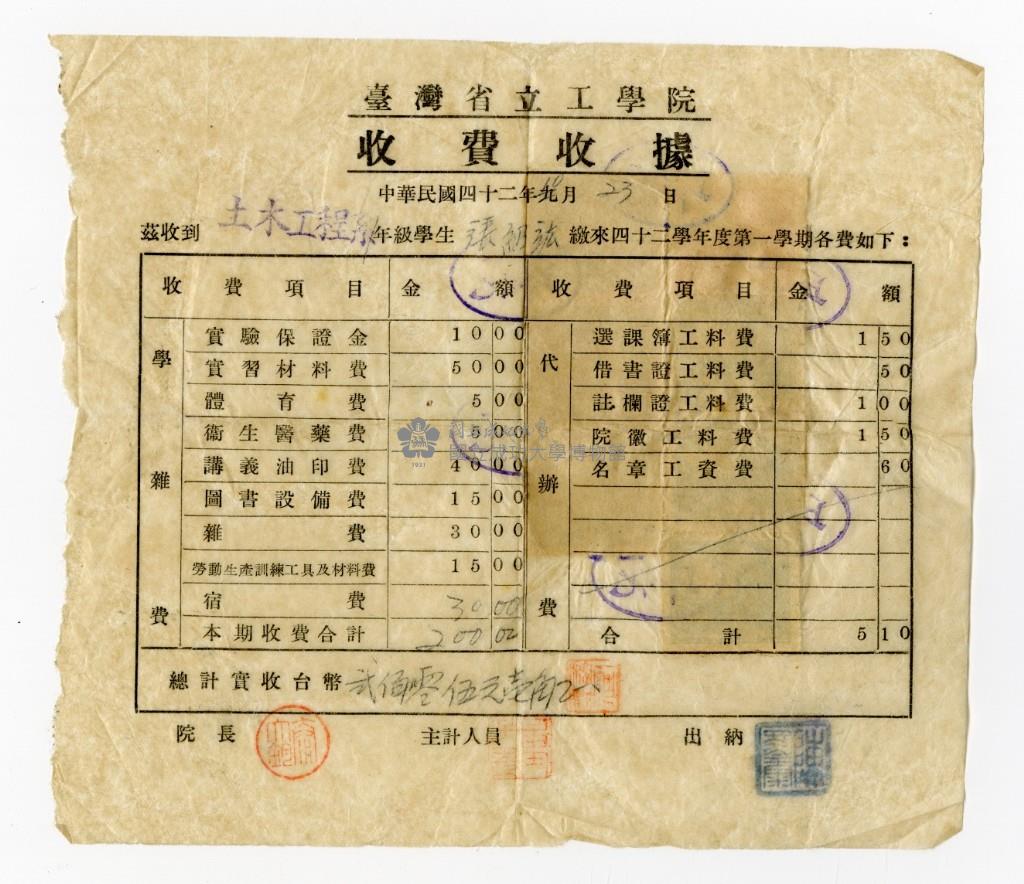 臺灣省立工學院
收費收據
中華民國四十二年10月23日
茲收到 土木工程系 年級學生 張 繳來四十二學年度第一學期各費如下：
收費項目 金額 收費項目 金額
學雜費 代辦費
實驗保證金 10 00 選課簿工料費 1 50
實習材料費 50 00 借書證工料費 50
體育費 5 00 註欄證工料費 1 00
衞生醫藥費 5 00 院徽工料費 1 50
講義油印費 40 00 名章工資費 60
圖書設備費 15 00
雜費 30 00
勞動生產訓練工具及材料費 15 00
宿費 30 00
本期收費合計 200 00 合計 5 10
總計實收台幣 貳佰零伍元壹角
院長 主計人員 出納
國立成功大學博物館
1931